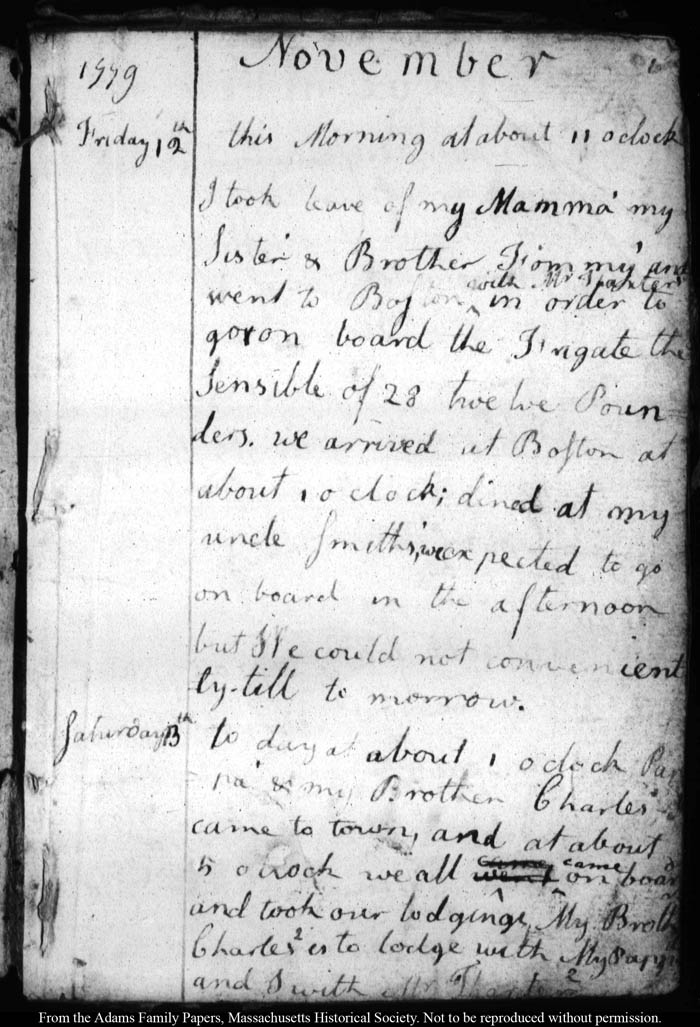 November
1779
Friday 12th this Morning at about 11 o clock
I took leave of my Mamma my
Sister & Brother Tommy and
with Mr Thaxter
went to Boston ^ in order to
go on board the Frigate the
Sensible of 28 twelve Poun=
ders. we arrived at Boston at
about 1 o clock; dined at my
uncle Smiths, we expected to go
on board in the afternoon
but We could not convenient
ly till to morrow.
Saturday 13th to day at about 1 o clock Pap
pa & my Brother Charles
came to town, and at about
came came
5 o clock we all went ^ on board
and took our lodgings, My Broth
Charles 2 is to lodge with My Pappa
and I with Mr Thaxter 2
From the Adams Family Papers, Massachusetts Historical Society. Not to be reproduced without permission.